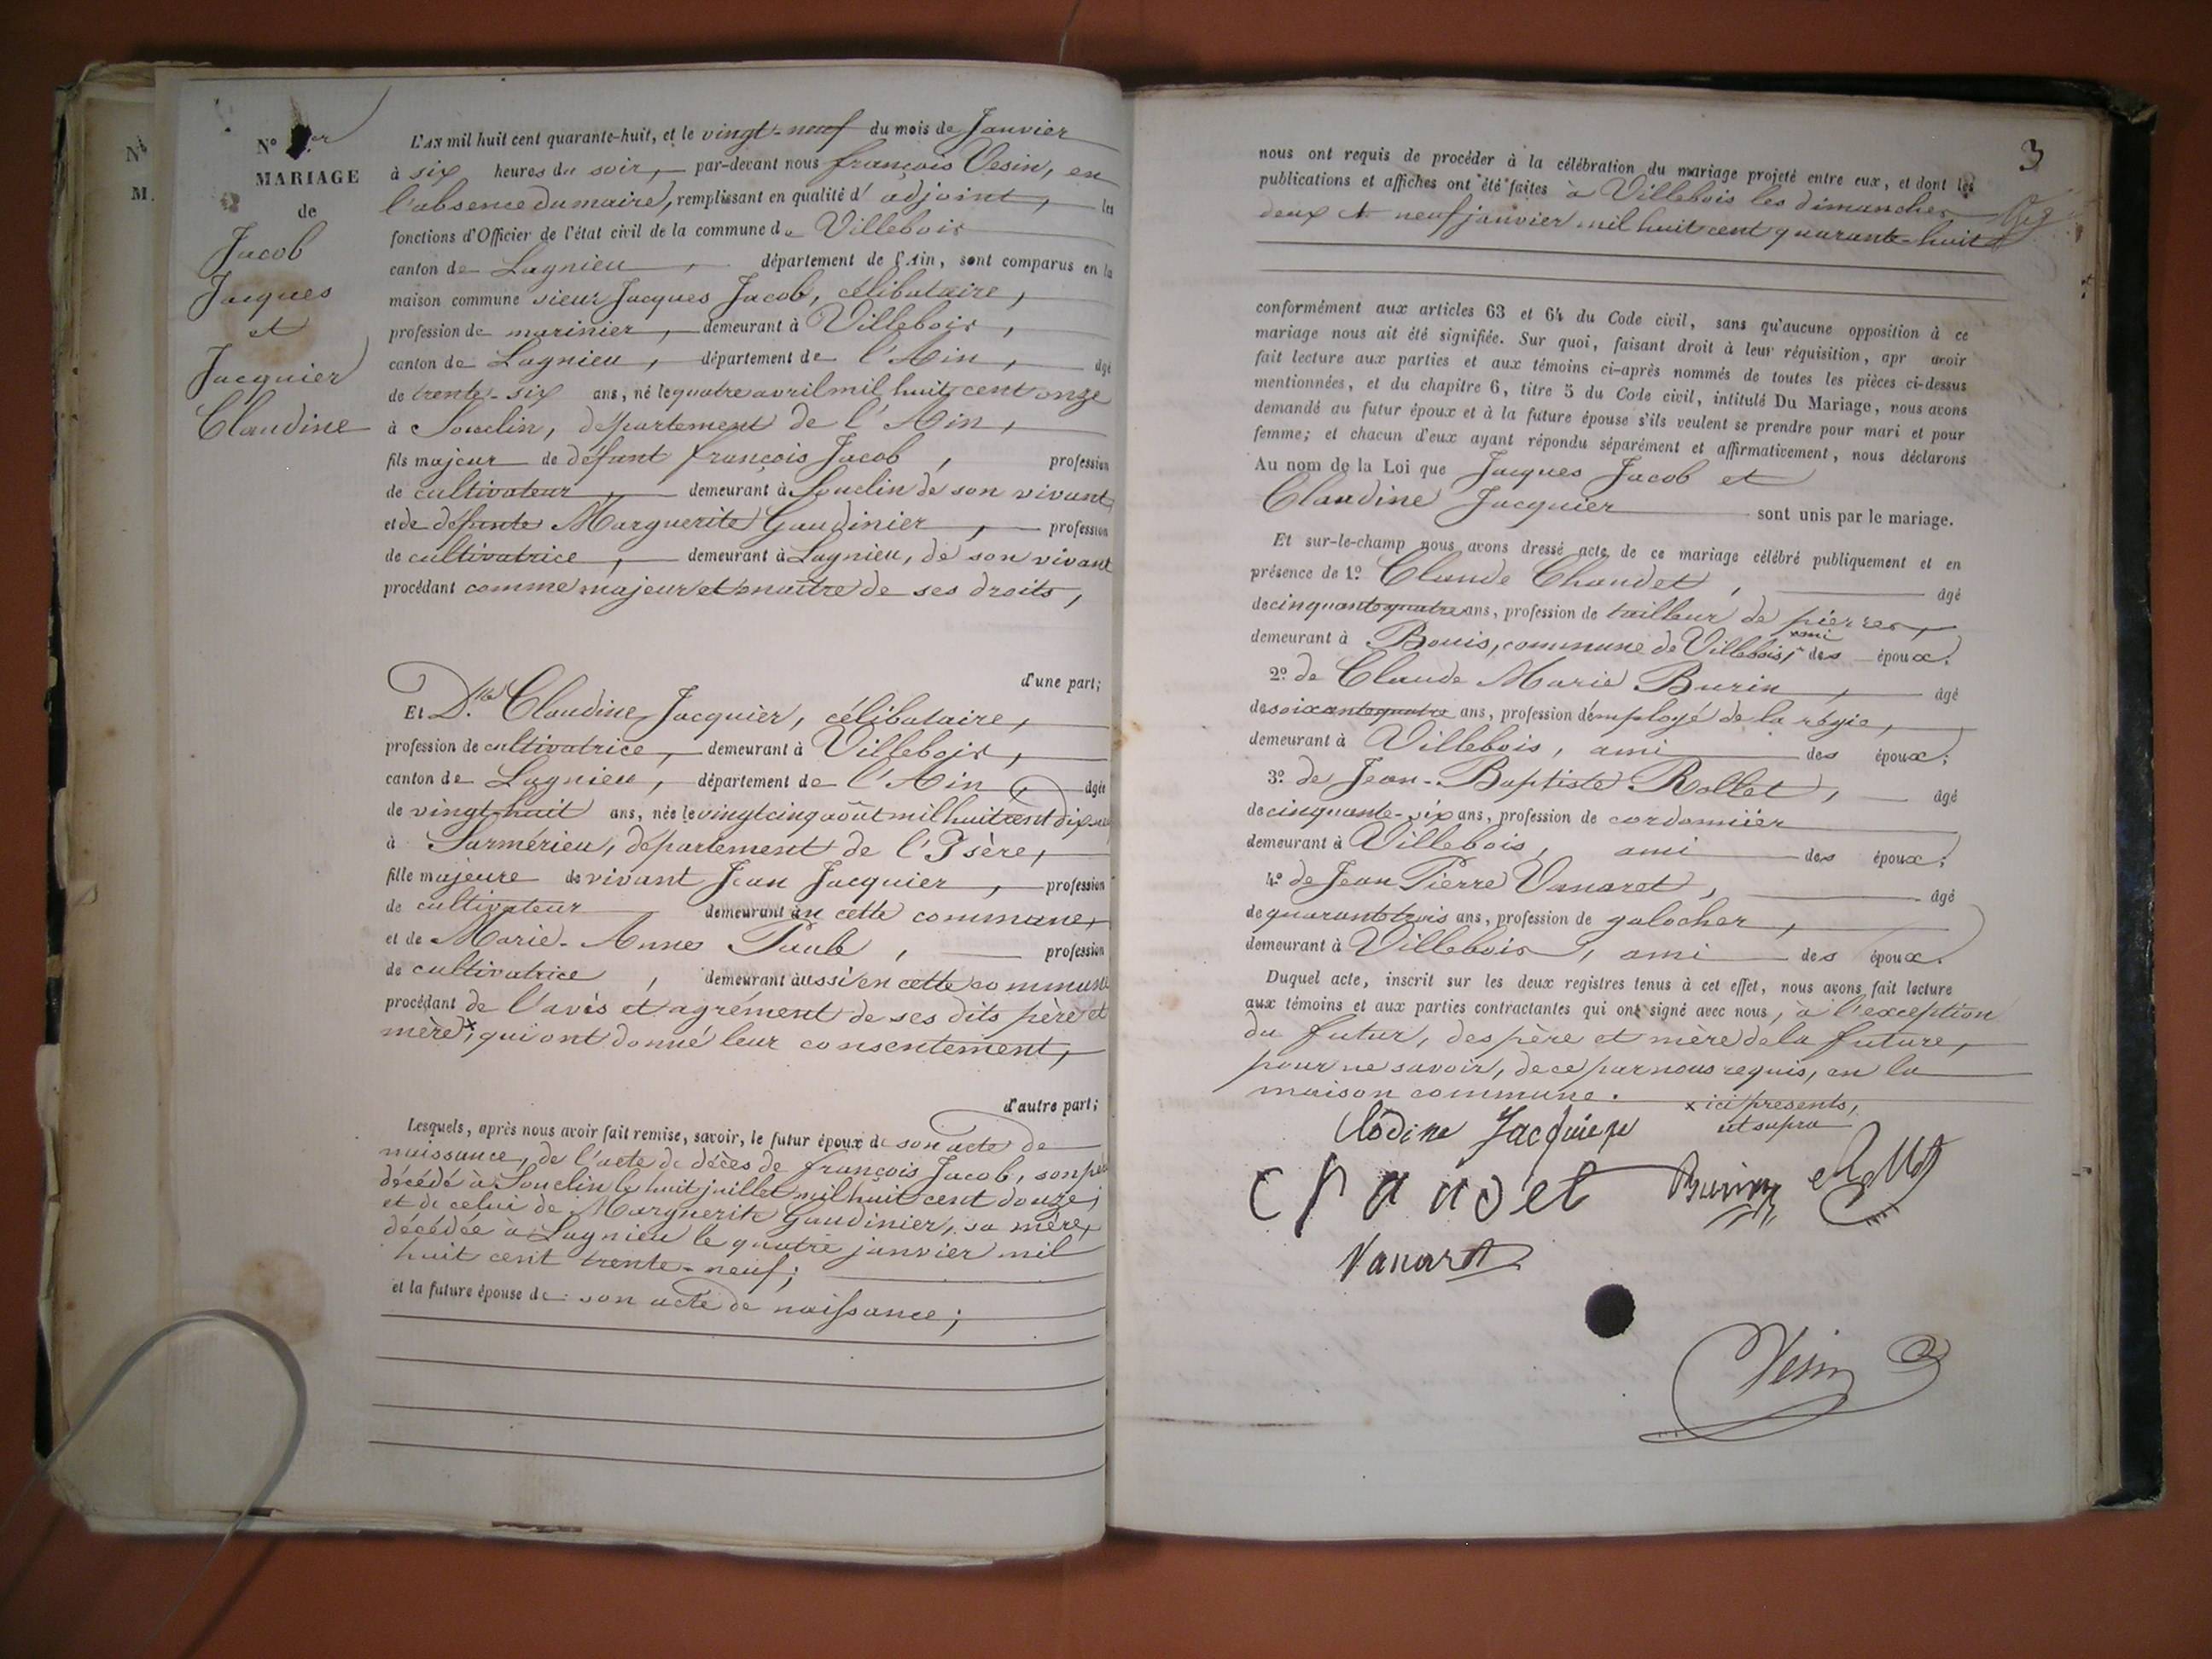 N°
M.
N° 1er
MARIAGE
de
Jacob
Jacques
et
Jacquier
Claudine
L'AN mil huit cent quarante-huit, et le vingt-neuf du mois de Janvier
à six heures du soir, par-devant nous françois Vesin, en
l'absence du maire, remplissant en qualité d'adjoint, les
fonctions d'Officier de l'état civil de la commune de Villebois
canton de Lagnieu, département de l'Ain, sont comparus en la
maison commune sieur Jacques Jacob, célibataire,
profession de marinier, demeurant à Villebois,
canton de Lagnieu, département de l'Ain, âgé
de trente-six ans, né le quatre avril mil huit cent onze
à Souclin, département de l'Ain,
fils majeur de défunt françois Jacob, profession
de cultivateur, demeurant à Souclin de son vivant,
et de défunte Marguerite Gaudinier, profession
de cultivatrice, demeurant à Lagnieu, de son vivant
procédant comme majeur et maître de ses droits,
d'une part;
Et D.lle Claudine Jacquier, célibataire,
profession de cultivatrice, demeurant à Villebois,
canton de Lagnieu, département de l'Ain, âgée
de vingt-huit ans, née le vingt cinq août mil huit cent dix-neuf
à Sermérieu, département de l'Isère,
fille majeure de vivant Jean Jacquier, profession
de cultivateur demeurant en cette commune,
et de Marie-Anne Paule, profession
de cultivatrice, demeurant aussi en cette commune
procédant de l'avis et agrément de ses dits père et
mère x, qui ont donné leur consentement,
d'autre part;
Lesquels, après nous avoir fait remise, savoir, le futur époux de son acte de
naissance, de l'acte de décès de françois Jacob, son père
décédé à Souclin le huit juillet mil huit cent douze;
et de celui de Marguerite Gaudinier, sa mère,
décédée à Lagnieu le quatre janvier mil
huit cent trente-neuf;
et la future épouse de: son acte de naissance;
3
nous ont requis de procéder à la célébration du mariage projeté entre eux, et dont les
publications et affiches ont été faites à Villebois les dimanches
deux et neuf janvier mil huit cent quarante-huit
conformément aux articles 63 et 64 du Code civil, sans qu'aucune opposition à ce
mariage nous ait été signifiée. Sur quoi, faisant droit à leur réquisition, apr avoir
fait lecture aux parties et aux témoins ci-après nommés de toutes les pièces ci-dessus
mentionnées, et du chapitre 6, titre 5 du Code civil, intitulé Du Mariage, nous avons
demandé au futur époux et à la future épouse s'ils veulent se prendre pour mari et pour
femme; et chacun d'eux ayant répondu séparément et affirmativement, nous déclarons
Au nom de la Loi que Jacques Jacob et
Claudine Jacquier sont unis par le mariage.
Et sur-le-champ nous avons dressé acte de ce mariage célébré publiquement et en
présence de 1° Claude Chaudet, âgé
de cinquante quatre ans, profession de tailleur de pierres,
demeurant à Bouis, commune de Villebois, ami des époux;
2° de Claude Marie Burin, âgé
de soixante quatre ans, profession d'employé de la régie,
demeurant à Villebois, ami des époux;
3° de Jean-Baptiste Rollet, âgé
de cinquante-six ans, profession de cordonnier
demeurant à Villebois, ami des époux;
4° de Jean Pierre Vanaret, âgé
de quarante trois ans, profession de galocher,
demeurant à Villebois, ami des époux.
Duquel acte, inscrit sur les deux registres tenus à cet effet, nous avons fait lecture
aux témoins et aux parties contractantes qui ont signé avec nous, à l'exception
du futur, des père et mère de la future,
pour ne savoir, de ce par nous requis, en la
maison commune. x ici présents,
ut supra
Clodine Jacquier
Chaudet Burin Rollet
Vanaret
Vesin